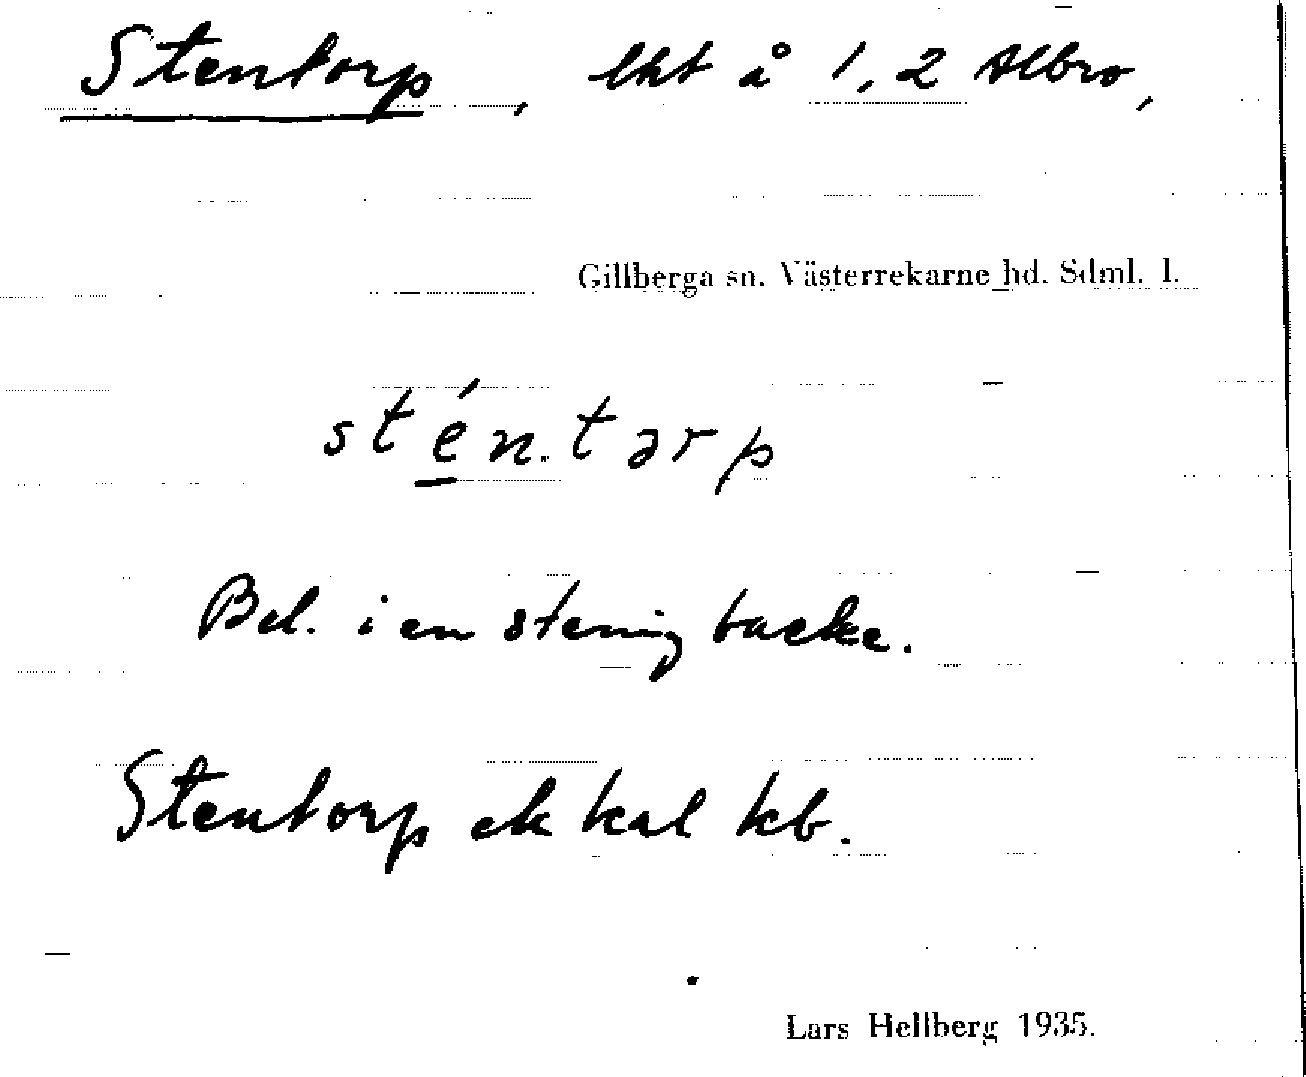 Stentorp, lht å 1,2 Albro,
Gillberga sn. Västerrekarne hd. Sdml. l.
sté̱n.tərp
Bel. i en stenig backe.
Stentorp ek kal kb.
Lars Hellberg 1935.